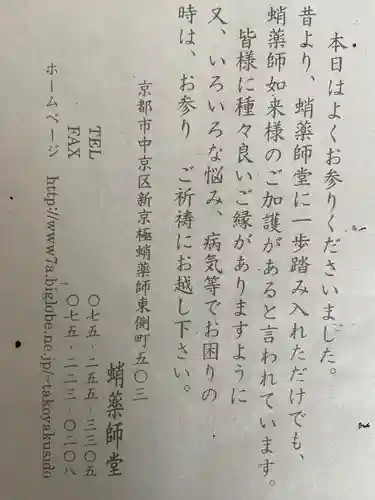 本日はよくお参りくださいました。
昔より、蛸薬師堂に一歩踏み入れただけでも、
蛸薬師如来様のご加護があると言われています。
皆様に種々良いご縁がありますように
又、いろいろな悩み、病気等でお困りの
時は、お参り ご祈祷にお越し下さい。
京都市中京区新京極蛸薬師東側町五〇三
蛸薬師堂
TEL 〇七五-二五五-三三〇五
FAX 〇七五-二二三-〇三〇八
ホームページ http://www7a.biglobe.ne.jp/~takoyakusido